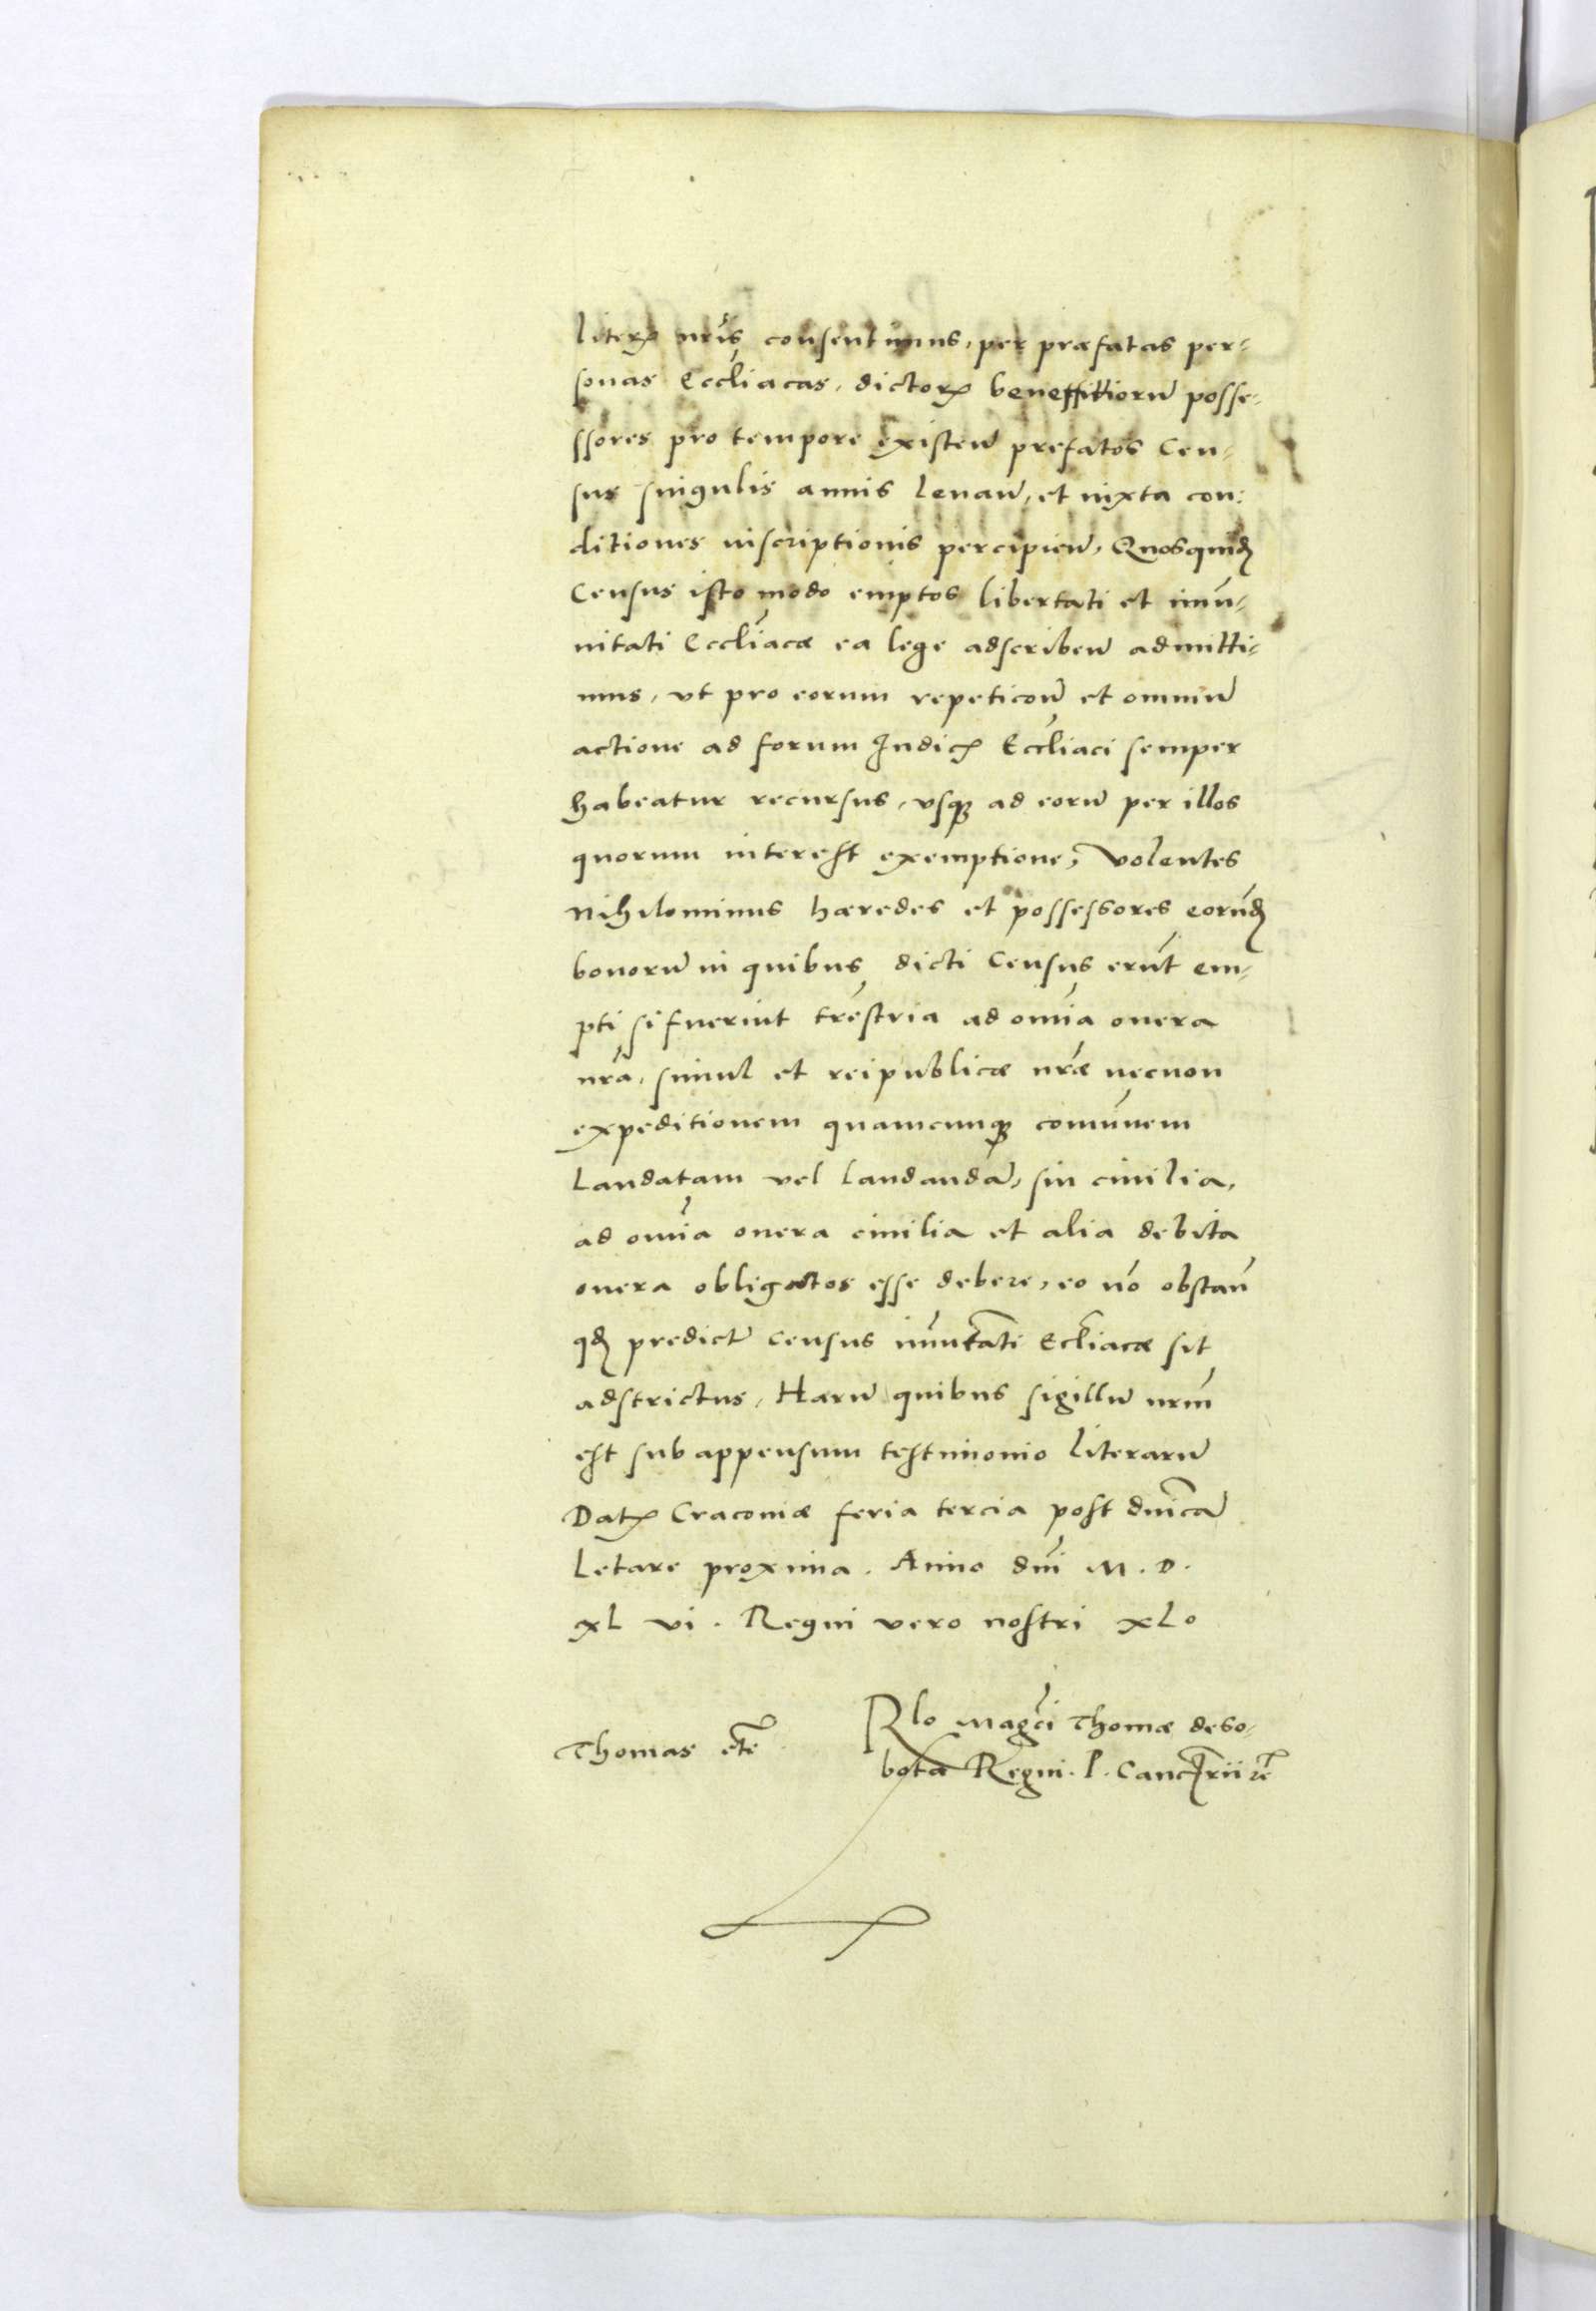 literꝝ nr̃is consentimus, per præfatas per-
sonas Eccl̃iacas, dictorꝝ beneffittiorũ posse-
ssores pro tempore existen̄ prefatos Cen-
sus singulis annis leuan̄, et iuxta con-
ditiones inscriptionis percipien̄, Quosquidẽ
Census isto modo emptos libertati et imũ-
nitati Eccl̃iacæ ea lege adscriben̄ admitti-
mus, vt pro eorum repeticon̄ et omnium̄
actione ad forum Iudicꝭ Eccl̃iaci semper
habeatur recursus, vsqꝫ ad eorũ per illos
quorum interest exemptione, Volentes
nihilominus hæredes et possessores eorũdẽ
bonorũ in quibus dicti Census erũt em-
pti si fuerint tr̃estria ad om̃ia onera
nr̃a, simul et reipublicæ nr̃æ necnon
expeditionem quamcunqꝫ comũnem
Laudatam vel laudandã, sin ciuilia,
ad om̃ia onera ciuilia et alia debita
onera obligatos esse debere, eo nõ obstan̄
qđ predict̃ Census im̃unitati Eccl̃iacæ sit
adstrictus, Harũ quibus sigillũ nr̃m
est subappensum testimonio literarũ
Datꝭ Cracouiæ feria tercia post dñicã
Letare proxima. Anno dñi M. D.
XL vi. Regni vero nostri XLo
Thomas etc̃
Rlo Magc̃i Thomæ de So-
bota Regni. P. Cancllrii zc̃